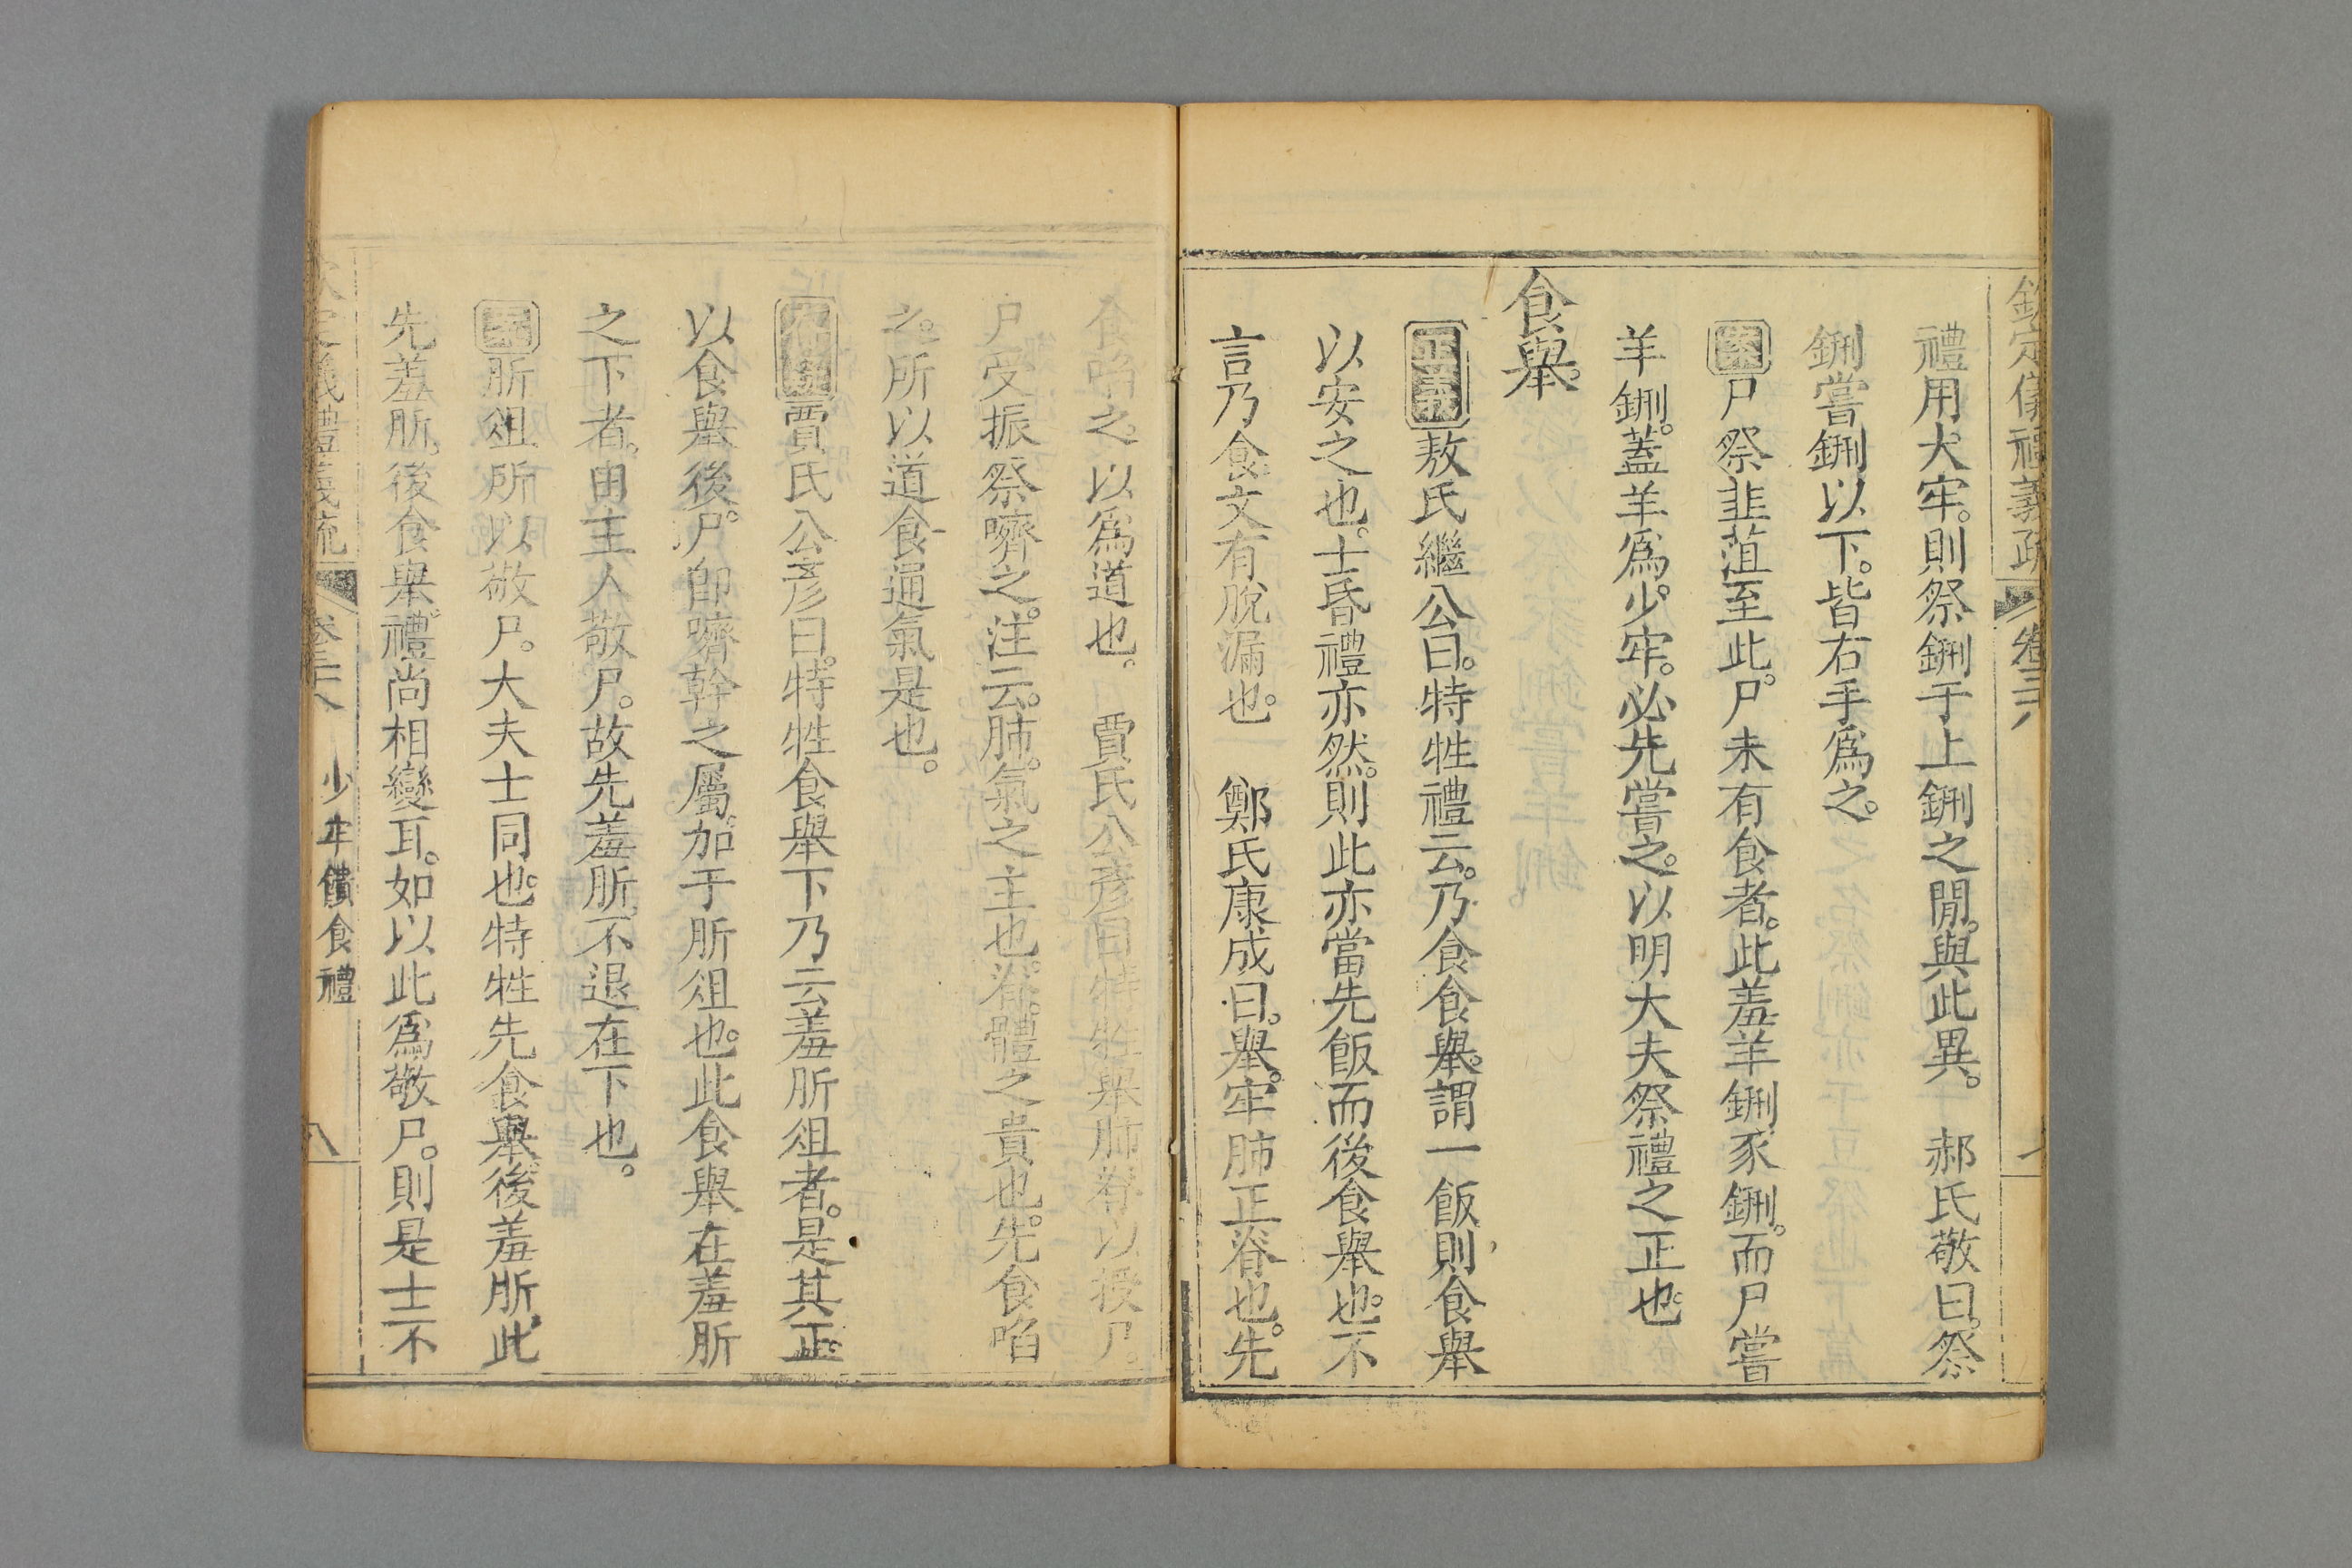 欽定儀禮義疏 卷三八
禮用大牢。則祭鉶于上鉶之閒。與此異。 郝氏敬曰。祭
鉶嘗鉶以下。皆右手爲之。
案尸祭韭菹至此。尸未有食者。此羞羊鉶豕鉶。而尸嘗
羊鉶。蓋羊爲少牢。必先嘗之。以明大夫祭禮之正也。
食舉。
正義敖氏繼公曰。特牲禮云。乃食食舉。謂一飯則食舉
以安之也。士昏禮亦然。則此亦當先飯而後食舉也。不
言乃食。文有脫漏也。 鄭氏康成曰。舉。牢肺正脊也。先
食啗之。以爲道也。 賈氏公彥曰。特牲舉肺脊以授尸。
尸受振祭嚌之。注云。肺。氣之主也。脊。體之貴也。先食啗
之。所以道食通氣是也。
賈氏公彥曰。特牲食舉下乃云羞肵俎者。是其正。
以食舉後。尸卽嚌幹之屬。加于肵俎也。此食舉在羞肵
之下者。由主人敬尸。故先羞肵。不退在下也。
案肵俎所以敬尸。大夫士同也。特牲先食舉。後羞肵。此
先羞肵。後食舉。禮尚相變耳。如以此爲敬尸。則是士不
欽定儀禮義疏 卷三八 少牢饋食禮 八